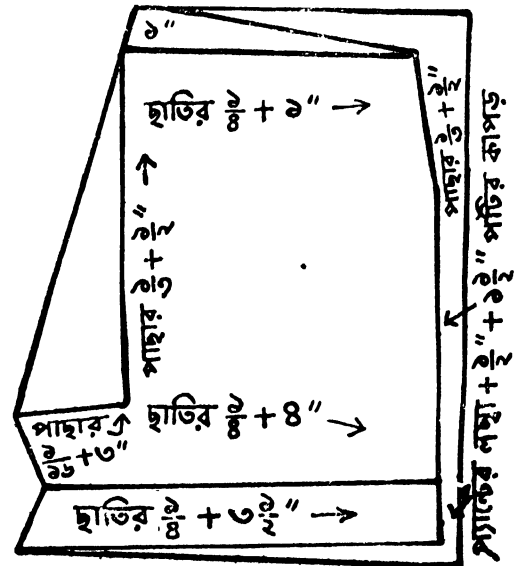 ১"
ছাতির ১/৪ + ১" →
পাছার ১/৩ + ১/২"
পাছার ১/৩ + ১/২" →
প্যান্টের লম্বা + ১/২" + ১ ১/২" পট্টির কাপড়
ছাতির ১/৪ + ৪" →
পাছার এ
১/১৬ + ৩"
ছাতির ১/৪ + ৩ ১/২" →